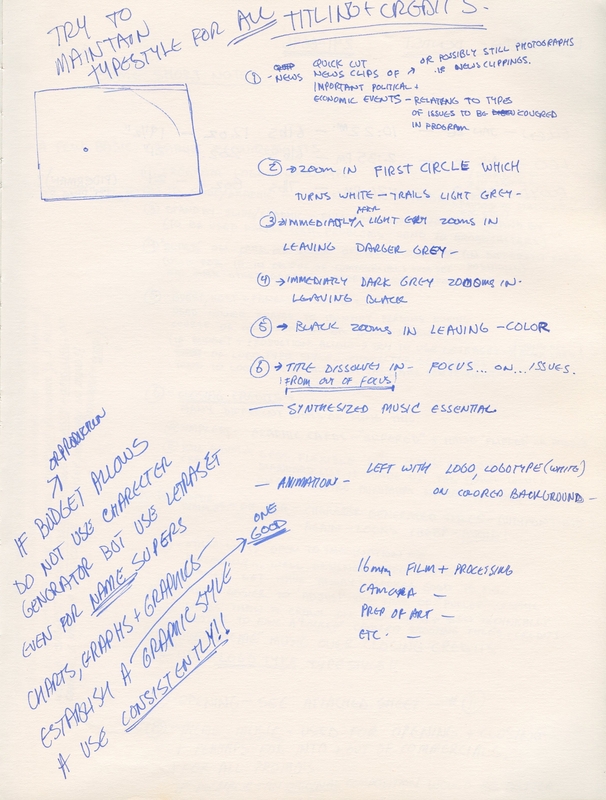 TRY TO
MAINTAIN
TYPESTYLE FOR ALL TITLING + CREDITS.
① - NEWS QUICK CUT
NEWS CLIPS OF → OR POSSIBLY STILL PHOTOGRAPHS
IMPORTANT POLITICAL + OF NEWS CLIPPINGS.
ECONOMIC EVENTS - RELATING TO TYPES
OF ISSUES TO BE COVERED
IN PROGRAM
② → ZOOM IN FIRST CIRCLE WHICH
TURNS WHITE - TRAILS LIGHT GREY -
③ → IMMEDIATLY AFTER LIGHT GREY ZOOMS IN
LEAVING DARGER GREY -
④ → IMMEDIATLY DARK GREY ZOOMS IN -
LEAVING BLACK
⑤ → BLACK ZOOMS IN LEAVING - COLOR
⑥ → TITLE DISSOLVES IN - FOCUS... ON... ISSUES.
FROM OUT OF FOCUS
— SYNTHESIZED MUSIC ESSENTIAL
— ANIMATION - LEFT WITH LOGO, LOGOTYPE (WHITE)
ON COLORED BACKGROUND -
16mm FILM + PROCESSING
CAMERA —
PREP OF ART —
ETC. —
OR PRODUCTION
IF BUDGET ALLOWS
DO NOT USE CHARECTER
GENERATOR BUT USE LETRASET
EVEN FOR NAME SUPERS
CHARTS, GRAPHS + GRAPHICS -
ESTABLISH A GRAPHIC STYLE
& USE CONSISTENTLY!!
ONE
GOOD